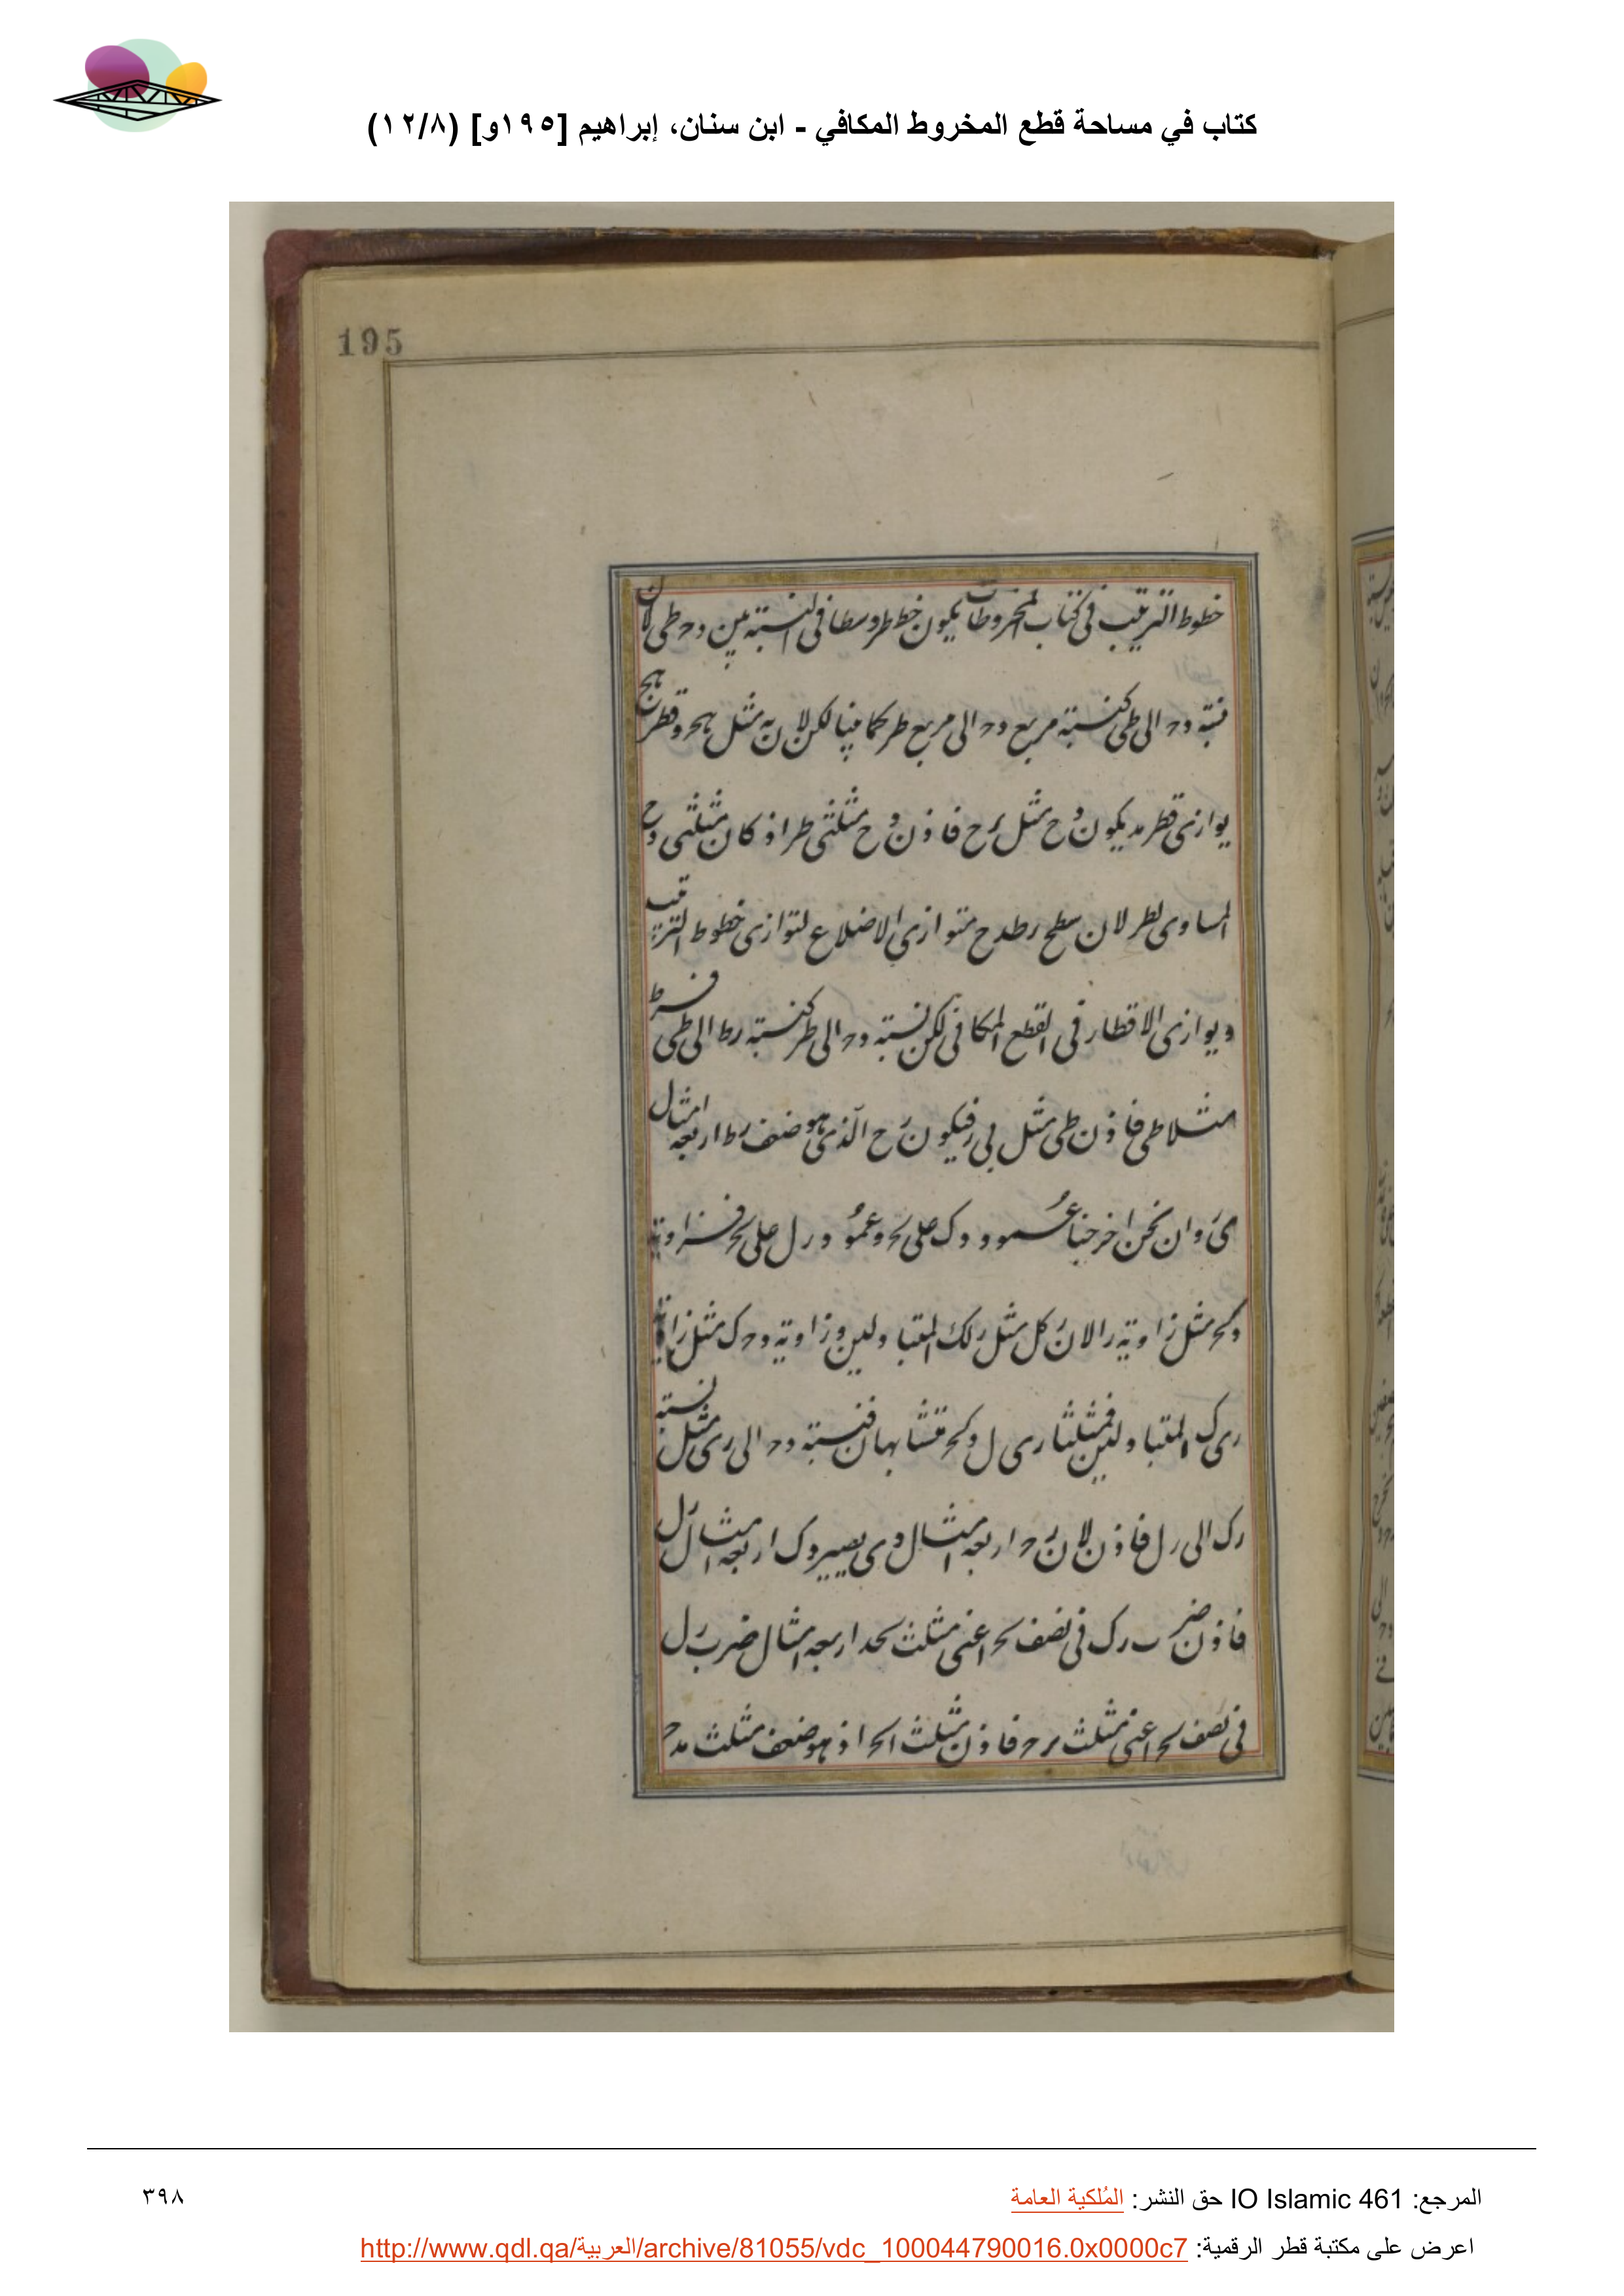 كتاب في مساحة قطع المخروط المكافي - ابن سنان، إبراهيم [١٩٥و] (١٢/٨)
195
خطوط الترتيب في كتاب المخروطات يكون خط طر وسطا في النسبة بين وح طى لان
نسبة وح الى طى كنسبة مربع وح الى مربع طر كما بينا لكن لان به مثل هج وقطر
يوازى قطر مد يكون وح مثل رح فاذن وح مثلى طر اذ كان مثلى
المساوى لطر لان سطح رطدح متوازى الاضلاع لتوازى خطوط الترتيب
ويوازى الاقطار فى القطع المكافى لكن نسبة وح الى طر كنسبة رط الى طى فرط
مثلا طى فاذن طى مثل ى ر فيكون رح الذى هو ضعف رط اربعة امثال
ى ر وان نحن اخرجنا عمود وك على حر وعمود رل على حر فزاوية
مثل زاوية رالان كل مثل رلك المتبادلين وزاوية وحك مثل زاوية
رى ك المتبادلين فمثلثا رى ل وكح متشابهان فنسبة وح الى رى مثل نسبة
رك الى رل فاذن لان رح اربعة امثال وى يصير وك اربعة امثال رل
فاذن ضرب رك فى نصف حر اعنى مثلث حد اربعة امثال ضرب رل
فى نصف حر اعنى مثلث رح فاذن مثلث احر اذ هو ضعف مثلث مدح
المرجع: IO Islamic 461 حق النشر: المُلكية العامة
٣٩٨
اعرض على مكتبة قطر الرقمية: http://www.qdl.qa/العربية/archive/81055/vdc_100044790016.0x0000c7